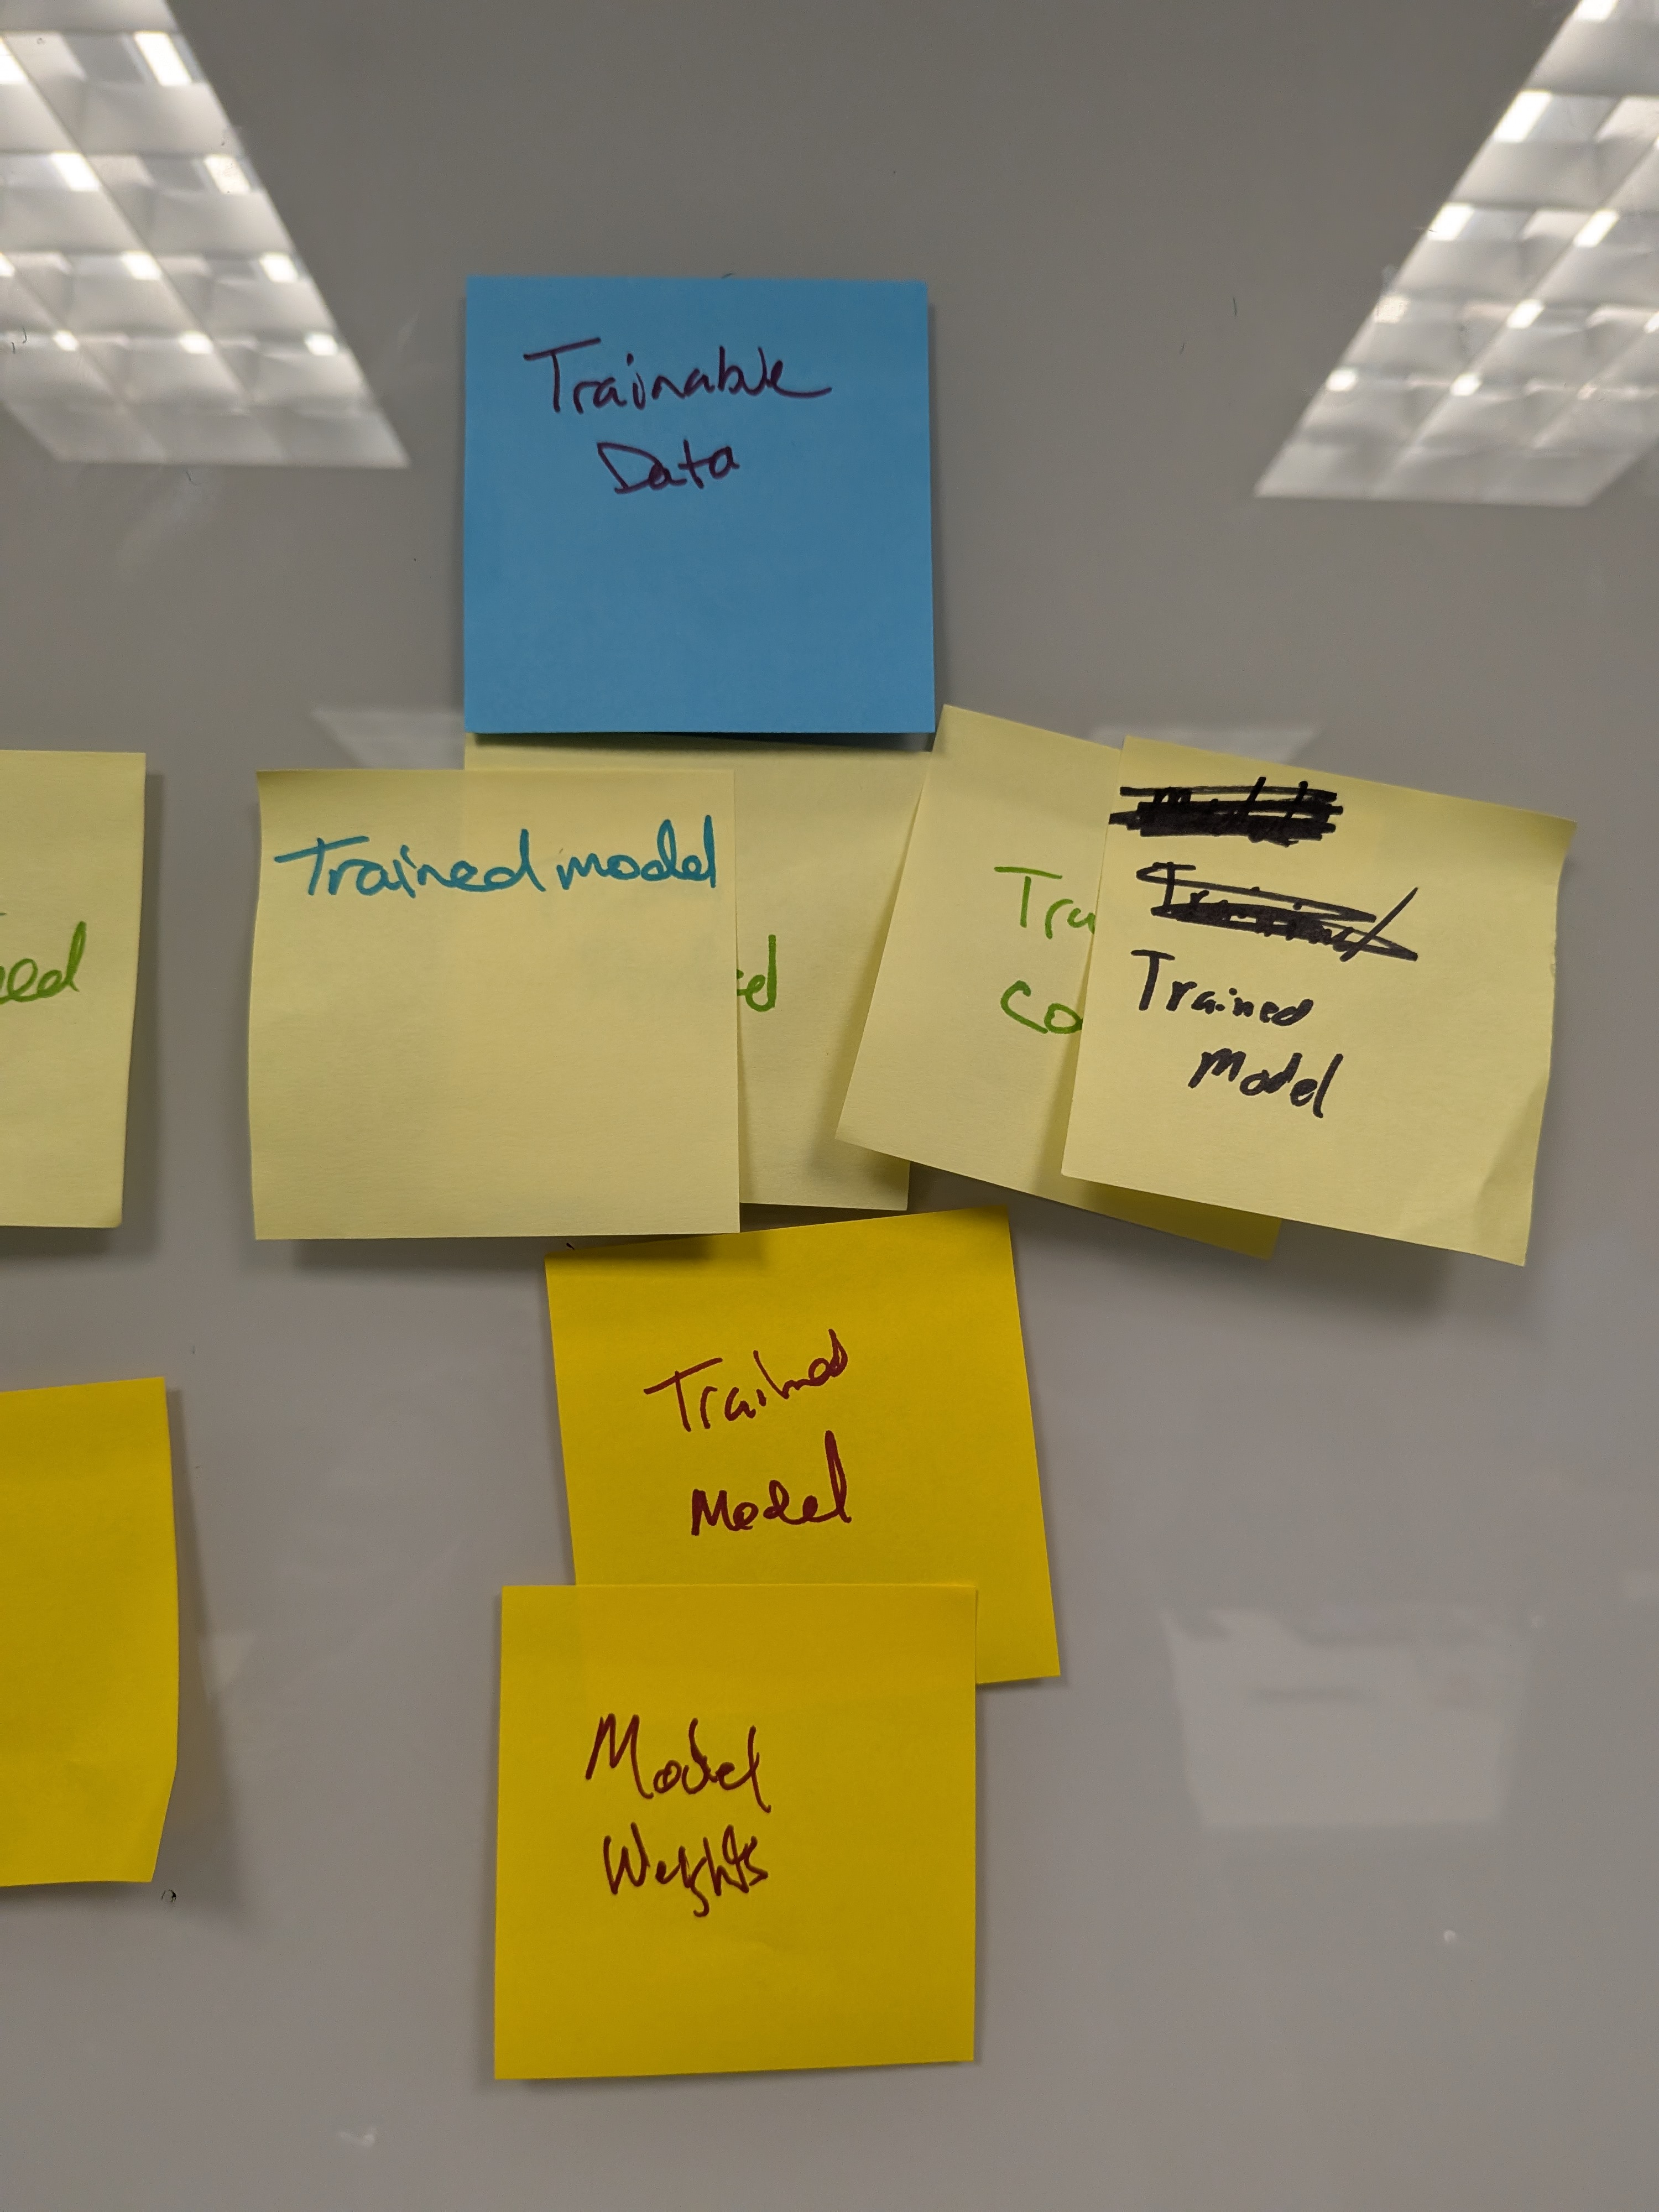 Trainable
Data
Trained model
Trained
Model
Trained
Model
Model
Weights